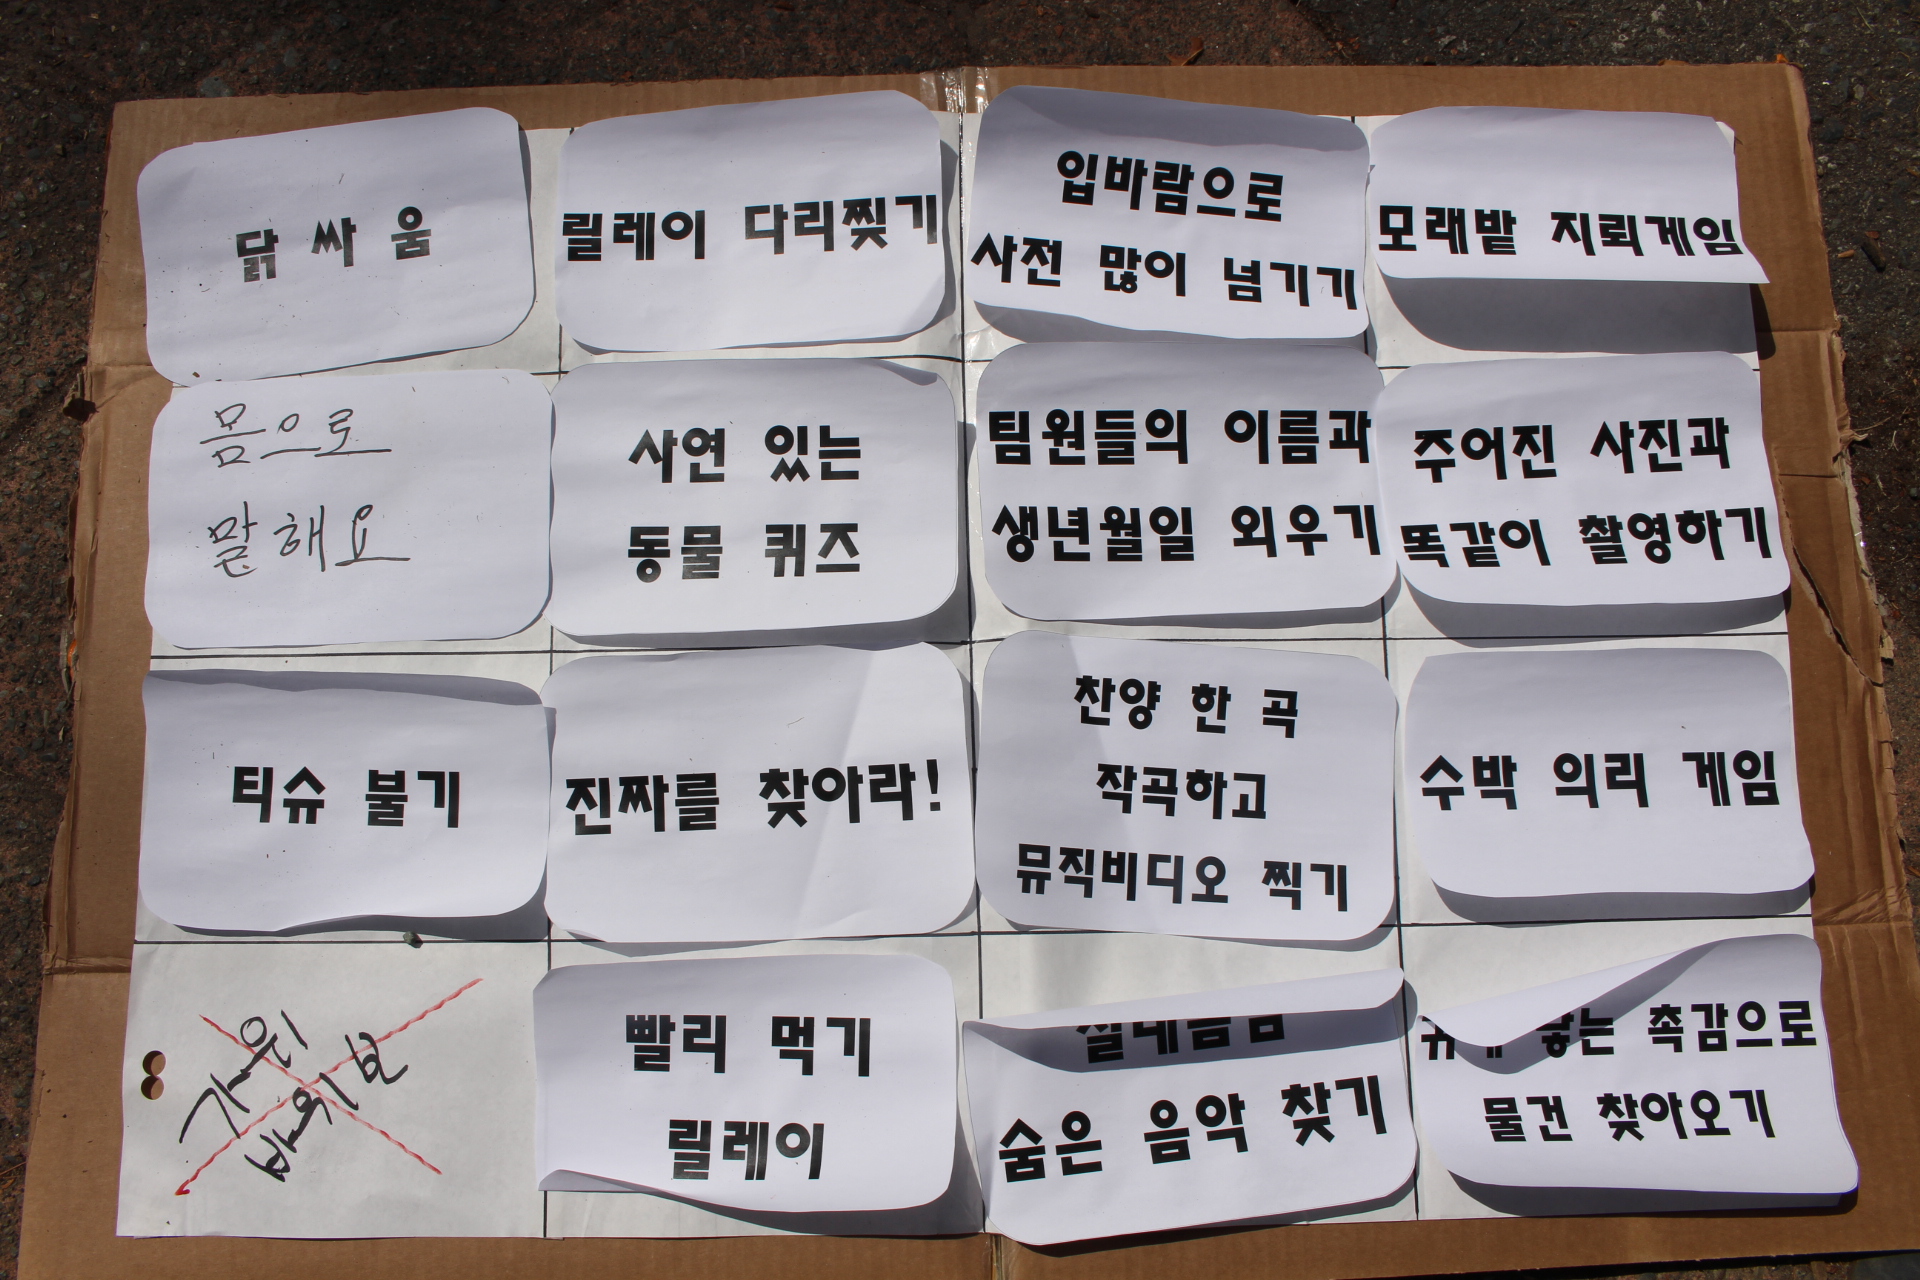 닭 싸 움
릴레이 다리찢기
입바람으로
사전 많이 넘기기
모래밭 지뢰게임
몸으로
말해요
사연 있는
동물 퀴즈
팀원들의 이름과
생년월일 외우기
주어진 사진과
똑같이 촬영하기
티슈 불기
진짜를 찾아라!
찬양 한 곡
작곡하고
뮤직비디오 찍기
수박 의리 게임
가위
바위보
빨리 먹기
릴레이
숨은 음악 찾기
닿는 촉감으로
물건 찾아오기